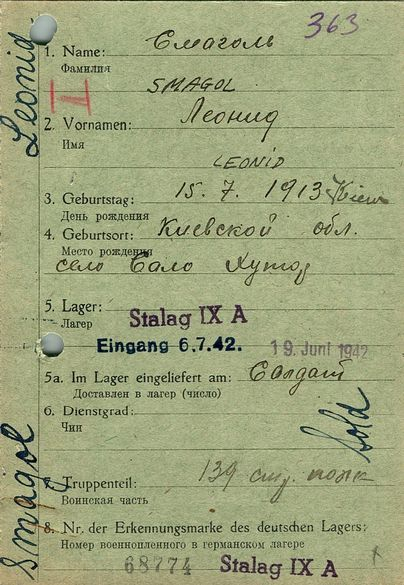 363
Leonid
1. Name: Смаголь
Фамилия
SMAGOL
I
2. Vornamen: Леонид
Имя
LEONID
3. Geburtstag: 15. 7. 1913 Kiew
День рождения
4. Geburtsort: Киевской обл.
Место рождения
село Сало Хутор
5. Lager: Stalag IX A
Лагер
Eingang 6.7.42. 19. Juni 1942
5a. Im Lager eingeliefert am: Солдат
Доставлен в лагер (число)
6. Dienstgrad: Sold
Чин
Smagol
Truppenteil: 139 стр. полк
Воинская часть
8. Nr. der Erkennungsmarke des deutschen Lagers:
Номер военнопленного в германском лагере
68774 Stalag IX A